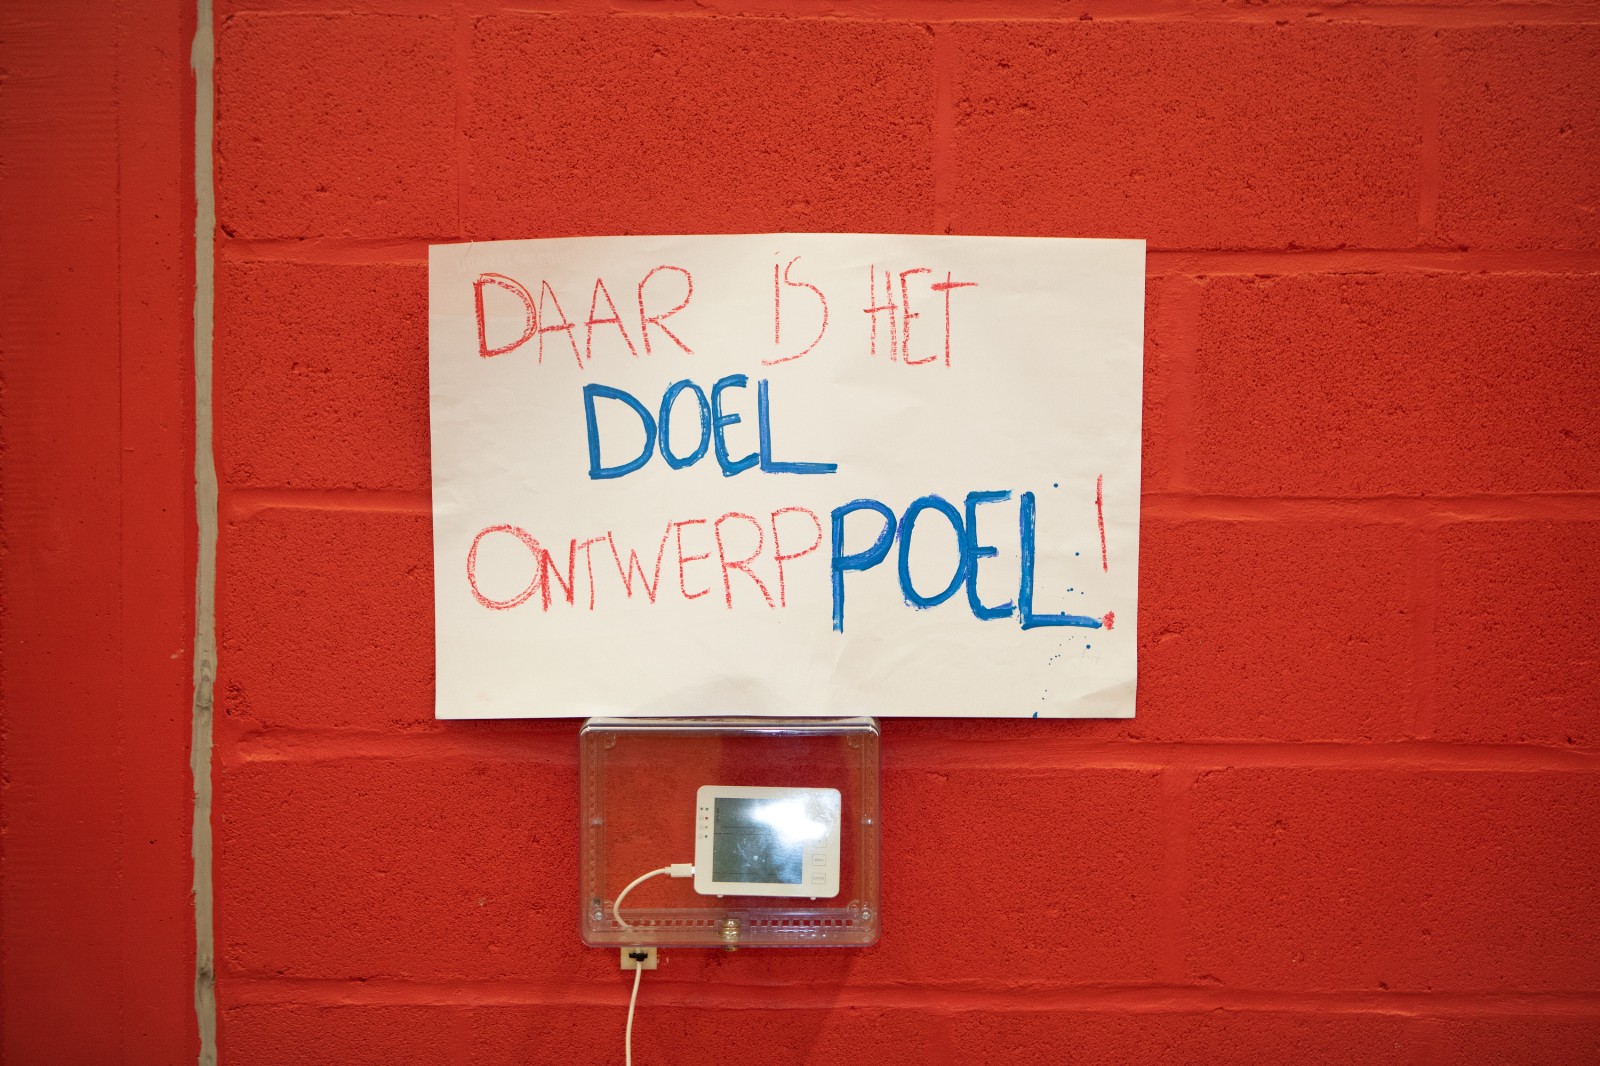 DAAR IS HET
DOEL
ONTWERPPOEL!